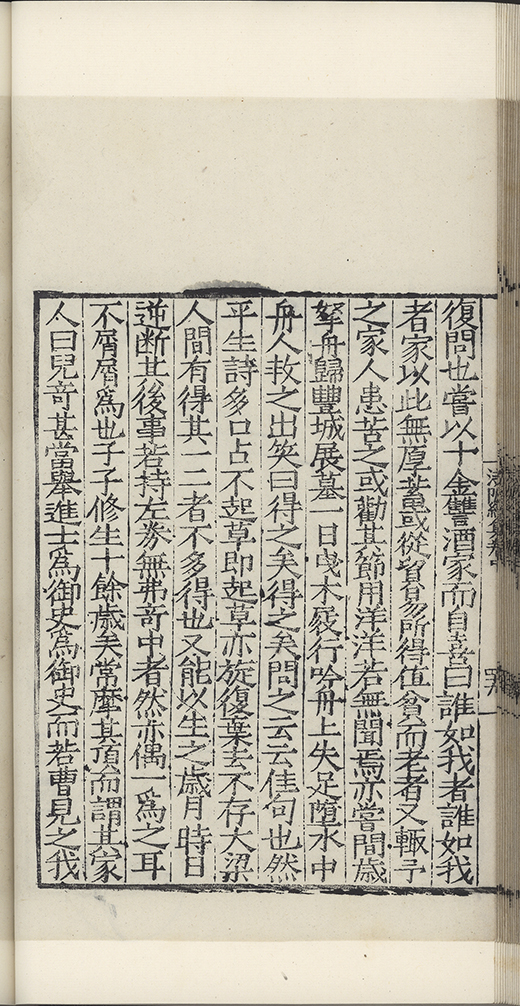 復問也嘗以十金讐酒家而自喜曰誰如我者誰如我
者家以此無厚蓄或從貿易所得值貧而老者又輙予
之家人患苦之或勸其節用洋洋若無聞焉亦嘗間歲
拏舟歸豐城展墓一日曳木屐行吟舟上失足墮水中
舟人救之出笑曰得之矣得之矣問之云云佳句也然
平生詩多口占不起草即起草亦旋復棄去不存大梁
人間有得其一二者不多得也又能以生之歲月時日
逆斷其後事若持左劵無弗竒中者然亦偶一為之耳
不屑屑為也子子修生十餘歲矣常摩其頂而謂其家
人曰兒竒甚當舉進士為御史為御史而若曹見之我